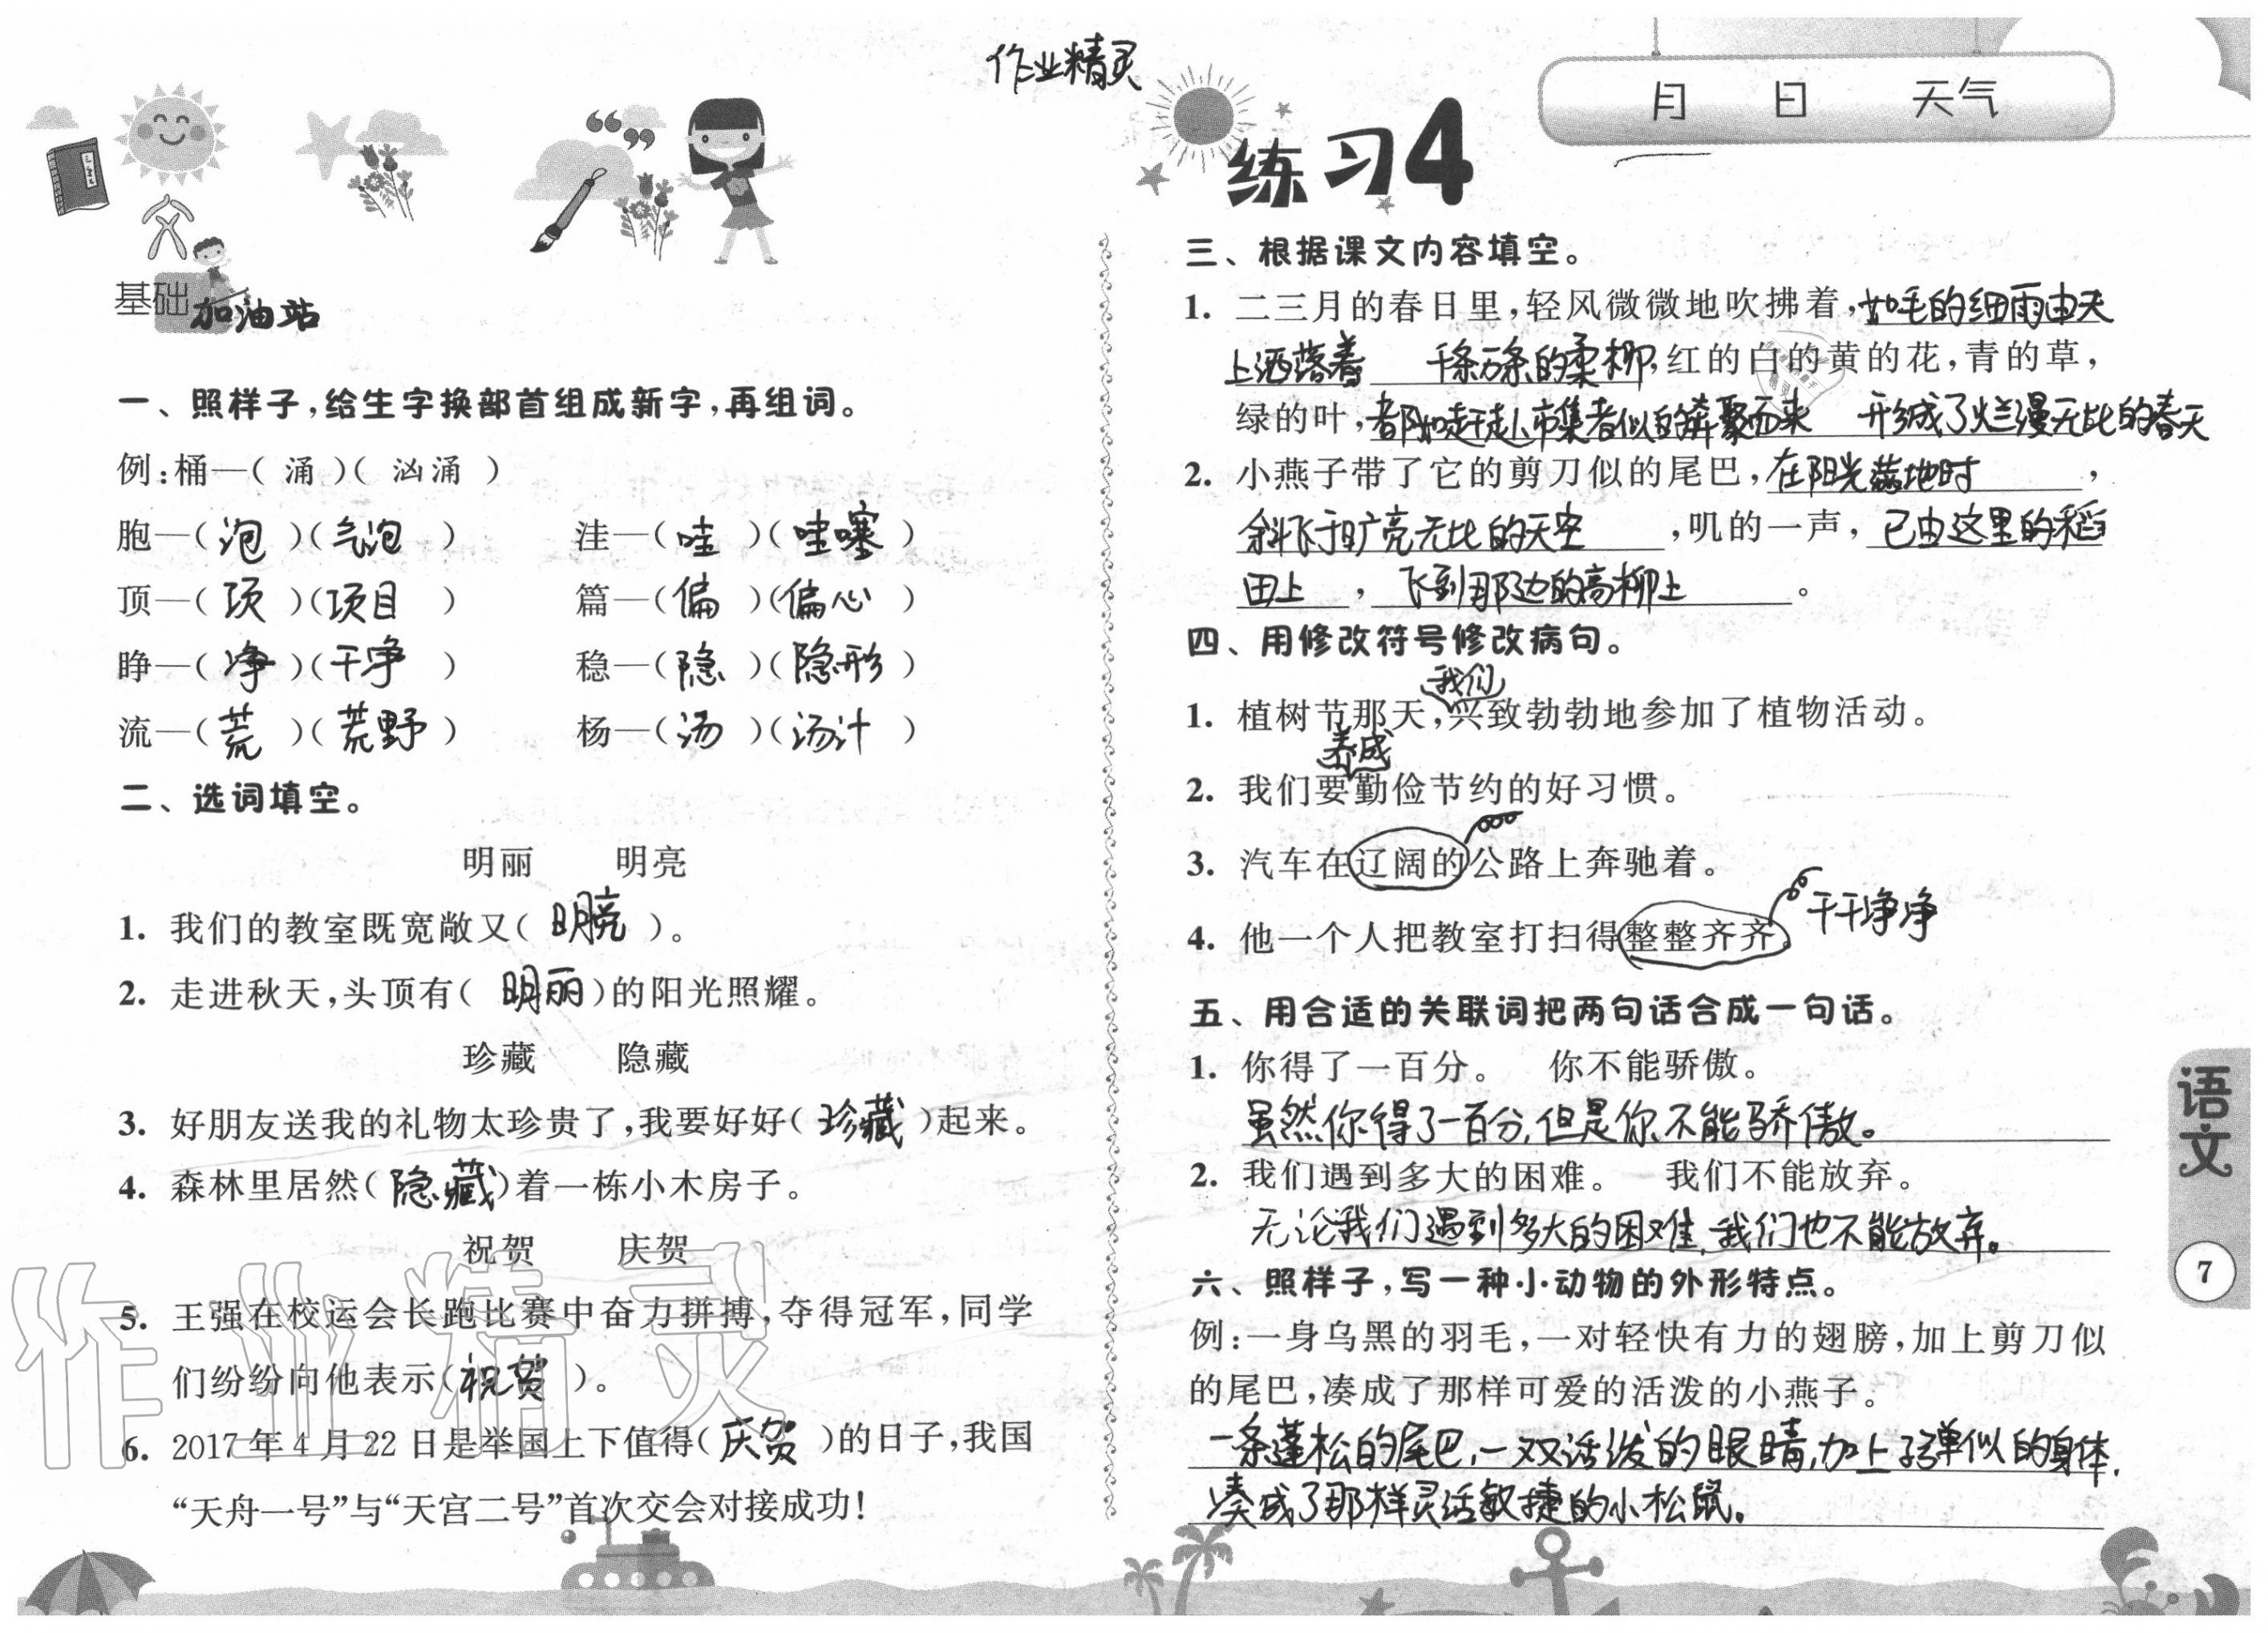 作业精灵
练习4
月 日 天气
基础加油站
一、照样子,给生字换部首组成新字,再组词。
例:桶—( 涌 )( 汹涌 )
胞—( 泡 )( 气泡 ) 洼—( 哇 )( 哇噻 )
顶—( 项 )( 项目 ) 篇—( 偏 )( 偏心 )
睁—( 净 )( 干净 ) 稳—( 隐 )( 隐形 )
流—( 荒 )( 荒野 ) 杨—( 汤 )( 汤汁 )
二、选词填空。
明丽 明亮
1. 我们的教室既宽敞又( 明亮 )。
2. 走进秋天,头顶有( 明丽 )的阳光照耀。
珍藏 隐藏
3. 好朋友送我的礼物太珍贵了,我要好好( 珍藏 )起来。
4. 森林里居然( 隐藏 )着一栋小木房子。
祝贺 庆贺
5. 王强在校运会长跑比赛中奋力拼搏,夺得冠军,同学
们纷纷向他表示( 祝贺 )。
6. 2017年4月22日是举国上下值得( 庆贺 )的日子,我国
“天舟一号”与“天宫二号”首次交会对接成功!
作业精灵
三、根据课文内容填空。
1. 二三月的春日里,轻风微微地吹拂着,如毛的细雨由天
上洒落着 千条万条的柔柳,红的白的黄的花,青的草,
绿的叶,都如赶赴市集者似的奔聚而来 形成了烂漫无比的春天
2. 小燕子带了它的剪刀似的尾巴,在阳光满地时,
斜飞于旷亮无比的天空,叽的一声,已由这里的稻
田上,飞到那边的高柳上。
四、用修改符号修改病句。
我们
1. 植树节那天,兴致勃勃地参加了植物活动。
养成
2. 我们要勤俭节约的好习惯。
3. 汽车在辽阔的公路上奔驰着。
4. 他一个人把教室打扫得整整齐齐。 干干净净
五、用合适的关联词把两句话合成一句话。
1. 你得了一百分。 你不能骄傲。
虽然你得了一百分,但是你不能骄傲。
2. 我们遇到多大的困难。 我们不能放弃。
无论我们遇到多大的困难,我们也不能放弃。
六、照样子,写一种小动物的外形特点。
例:一身乌黑的羽毛,一对轻快有力的翅膀,加上剪刀似
的尾巴,凑成了那样可爱的活泼的小燕子。
一条蓬松的尾巴,一双活泼的眼睛,加上子弹似的身体,
凑成了那样灵活敏捷的小松鼠。
语文
7